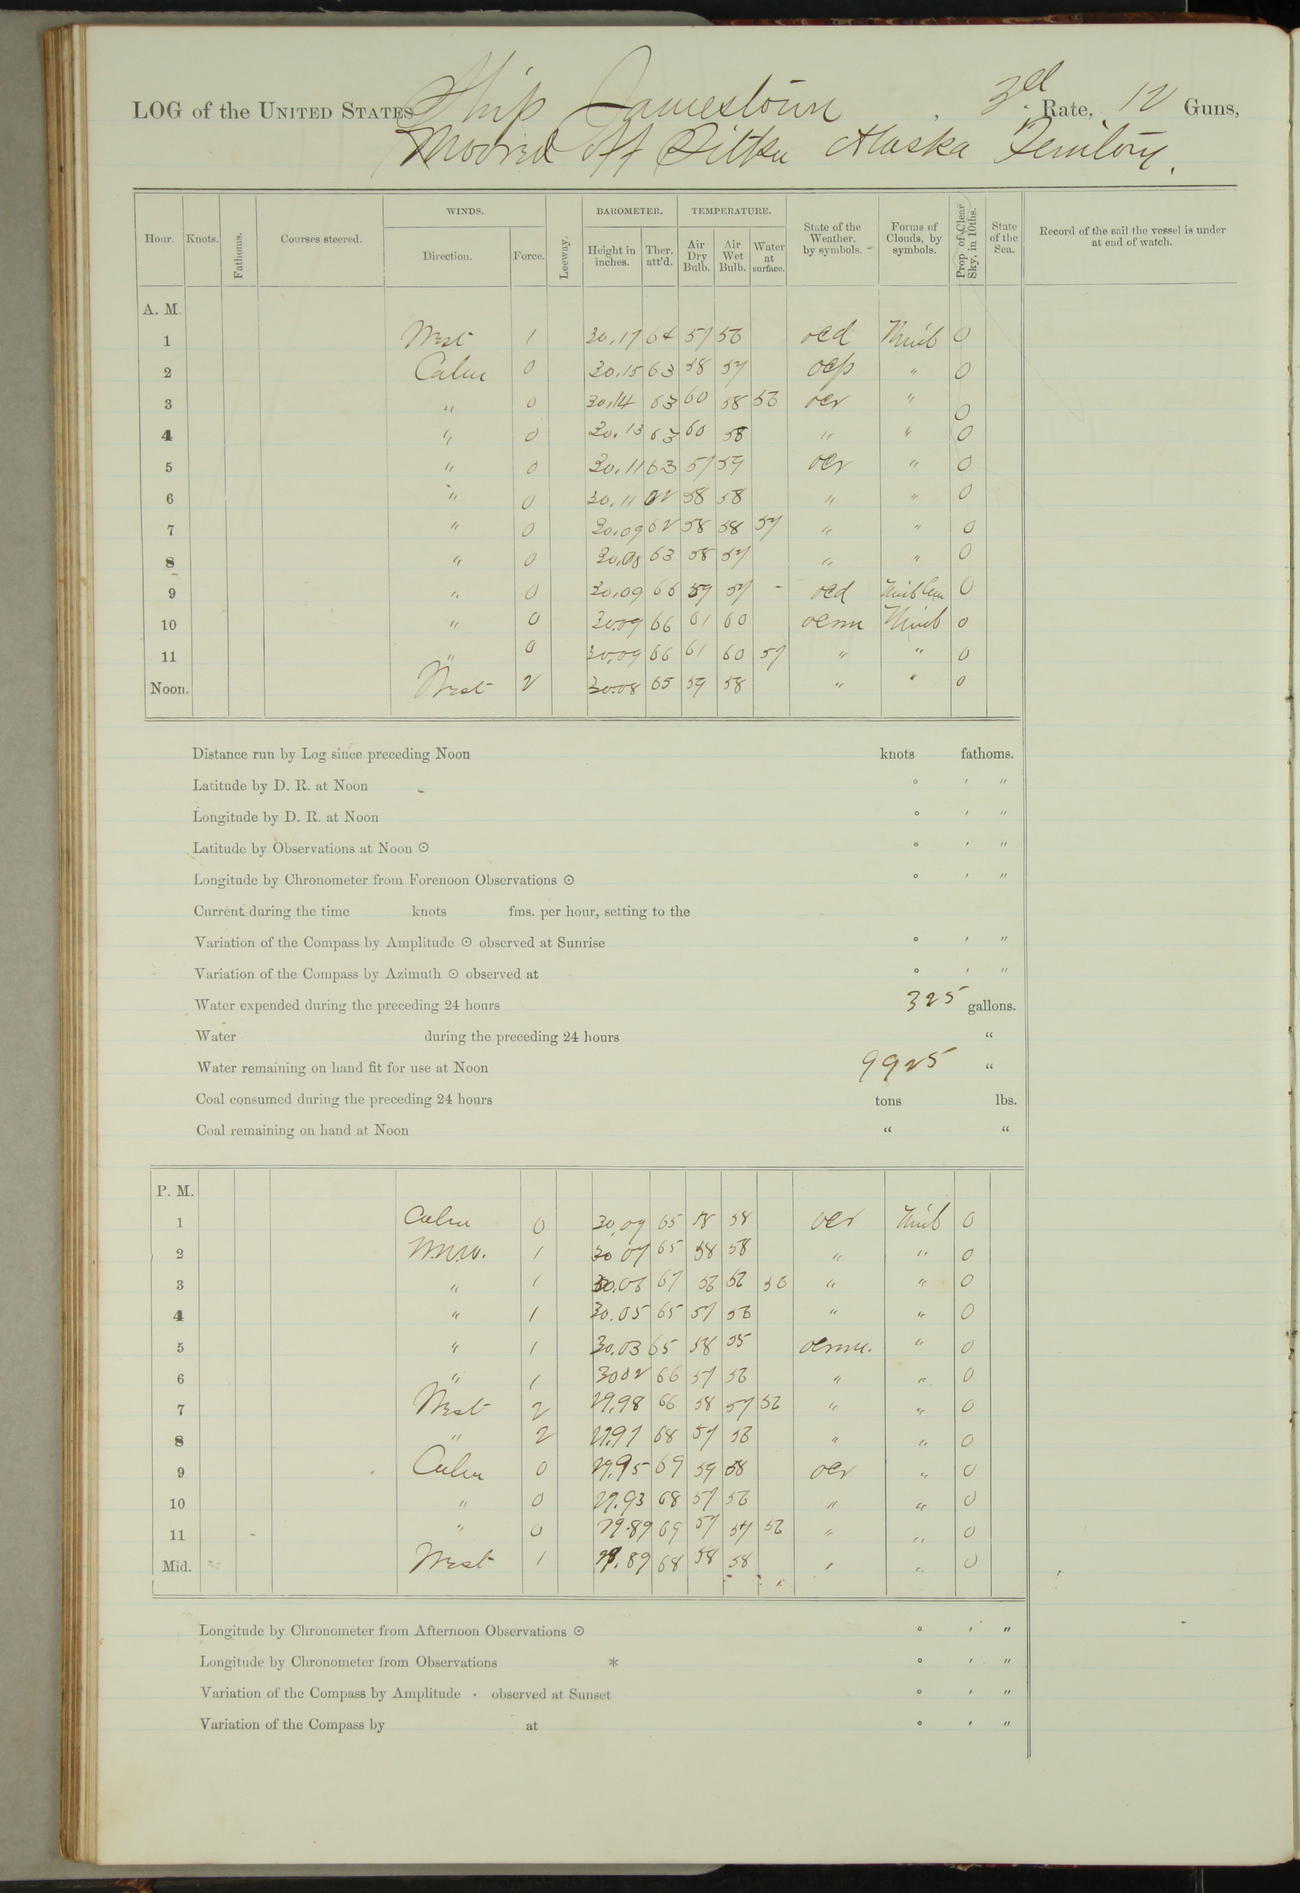 LOG of the UNITED STATES Ship Jamestown, 3rd Rate, 12 Guns,
Moored off Sitka Alaska Territory.
Hour. Knots. Fathoms. Courses steered. WINDS. Direction. Force. Leeway. BAROMETER. Height in inches. Ther. att'd. TEMPERATURE. Air Dry Bulb. Air Wet Bulb. Water at surface. State of the Weather, by symbols. Forms of Clouds, by symbols. Prop. of Clear Sky, in 10ths. State of the Sea. Record of the sail the vessel is under at end of watch.
A. M.
1 West 1 30.17 64 57 56 ocd Nimb 0
2 Calm 0 30.15 63 58 57 ocp " 0
3 " 0 30.14 63 60 58 56 ocr " 0
4 " 0 30.13 63 60 58 " " 0
5 " 0 30.11 63 57 59 ocr " 0
6 " 0 30.11 62 58 58 " " 0
7 " 0 30.09 62 58 58 57 " " 0
8 " 0 30.08 63 58 57 " " 0
9 " 0 30.09 66 59 57 - ocd Nimb 0
10 " 0 30.09 66 61 60 ocmr Nimb 0
11 " 0 30.09 66 61 60 57 " " 0
Noon. West 2 30.08 65 59 58 " " 0
Distance run by Log since preceding Noon knots fathoms.
Latitude by D. R. at Noon ° ′ ″
Longitude by D. R. at Noon ° ′ ″
Latitude by Observations at Noon ⊙ ° ′ ″
Longitude by Chronometer from Forenoon Observations ⊙ ° ′ ″
Current during the time knots fms. per hour, setting to the
Variation of the Compass by Amplitude ⊙ observed at Sunrise ° ′ ″
Variation of the Compass by Azimuth ⊙ observed at ° ′ ″
Water expended during the preceding 24 hours 325 gallons.
Water during the preceding 24 hours "
Water remaining on hand fit for use at Noon 9925 "
Coal consumed during the preceding 24 hours tons lbs.
Coal remaining on hand at Noon " "
P. M.
1 Calm 0 30.07 65 58 58 ocr Nimb 0
2 NNW. 1 30.07 65 58 58 " " 0
3 " 1 30.06 67 56 56 56 " " 0
4 " 1 30.05 65 57 56 " " 0
5 " 1 30.03 65 58 55 ocmr. " 0
6 " 1 30.02 66 57 56 " " 0
7 West 2 29.98 66 58 57 56 " " 0
8 " 2 29.97 68 57 56 " " 0
9 Calm 0 29.95 69 59 58 ocr " 0
10 " 0 29.93 68 57 56 " " 0
11 " 0 29.89 69 57 57 56 " " 0
Mid. West 1 29.89 68 58 58 " " 0
Longitude by Chronometer from Afternoon Observations ⊙ ° ′ ″
Longitude by Chronometer from Observations * ° ′ ″
Variation of the Compass by Amplitude · observed at Sunset ° ′ ″
Variation of the Compass by at ° ′ ″